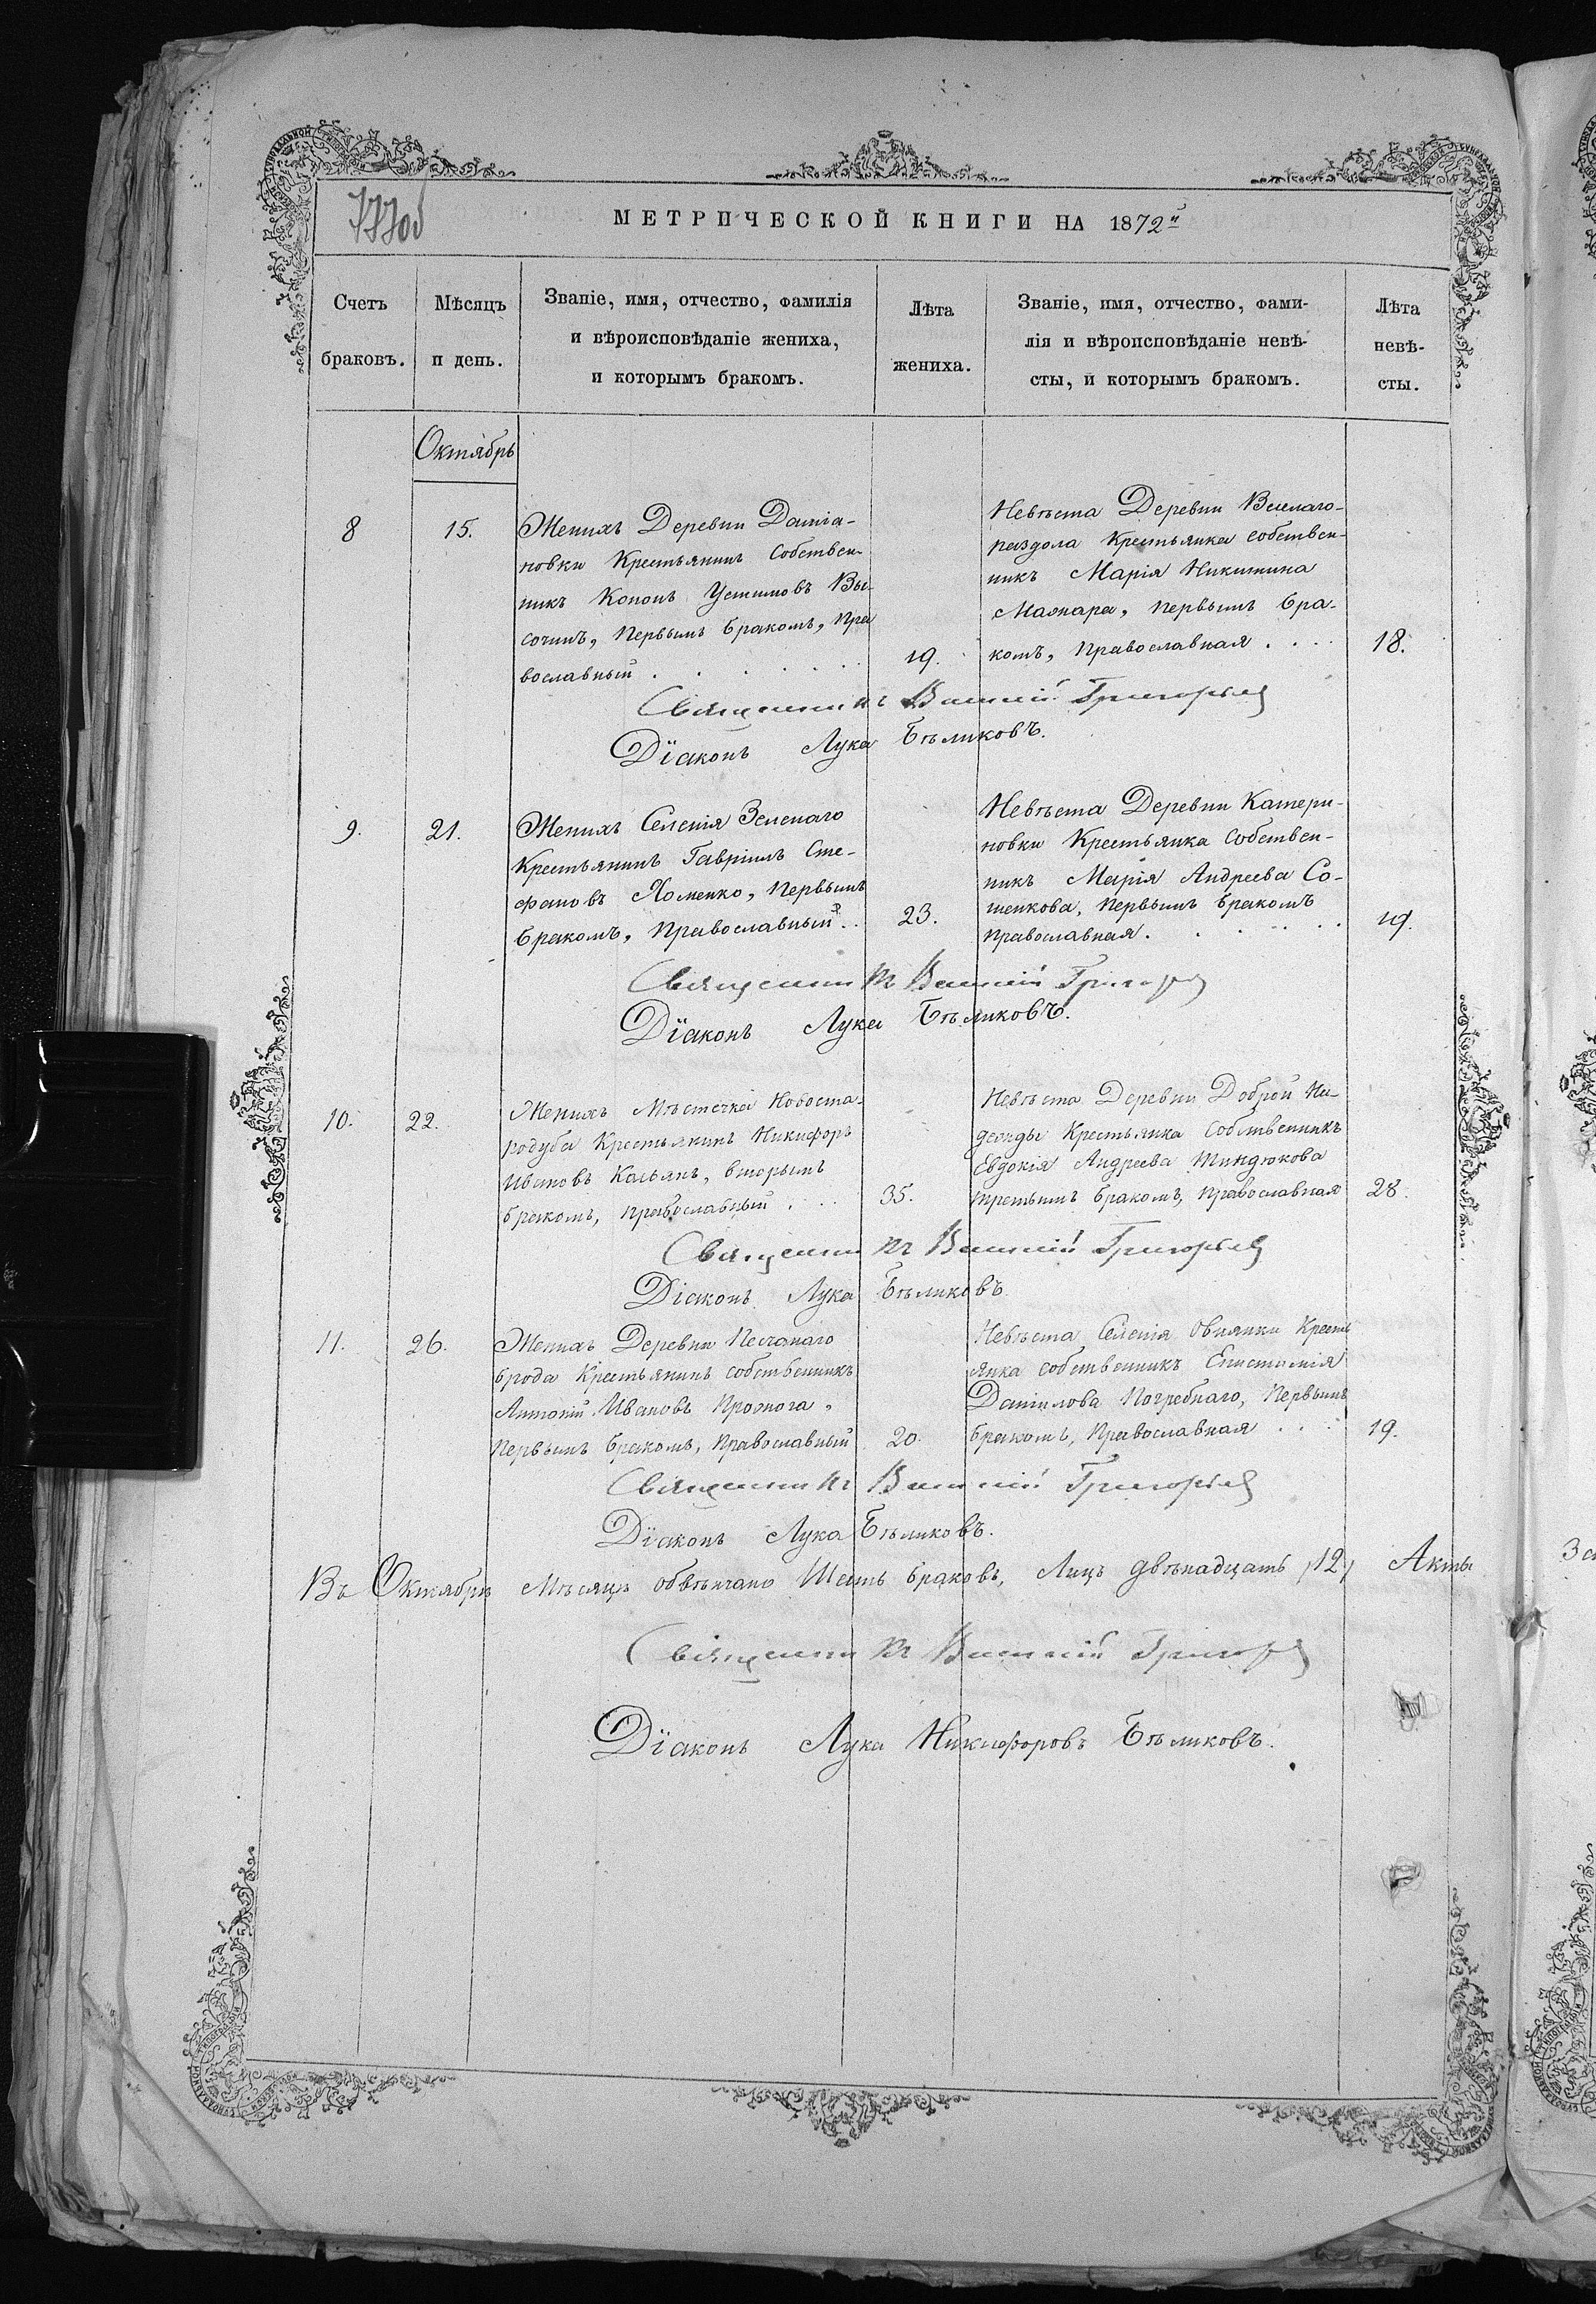 МЕТРИЧЕСКОЙ КНИГИ НА 1872й
Счетъ браковъ.
Мѣсяцъ и день.
Званіе, имя, отчество, фамилія
и вѣроисповѣданіе жениха,
и которымъ бракомъ.
Лѣта
жениха.
Званіе, имя, отчество, фами-
лія и вѣроисповѣданіе невѣ-
сты, и которымъ бракомъ.
Лѣта
невѣ-
сты.
Октябрь
8
15.
Женихъ Деревни Даміа-
новки Крестьянинъ Собствен-
никъ Кононъ Устимовъ Вы-
сочинъ, Первымъ бракомъ, Пра
вославный
19.
Невѣста Деревни Веселаго-
раздола Крестьянка собствен-
никъ Марія Никитина
Мажара, первымъ бра-
комъ, Православная
18.
Священникъ Григорьев
Діаконъ Лука Бѣликовъ.
9.
21.
Женихъ Селенія Зеленаго
Крестьянинъ Гавріилъ Сте-
фановъ Хоменко, Первымъ
бракомъ, Православный
23.
Невѣста Деревни Катери-
новки Крестьянка Собствен-
никъ Марія Андреева Со-
шенкова, Первымъ бракомъ
Православная
19.
Священникъ
Діаконъ Лука Бѣликовъ.
10.
22.
Женихъ Мѣстечка Новоста-
родуба Крестьянинъ Никифоръ
Ивановъ Касьянъ, вторымъ
бракомъ, православный
35.
Невѣста Деревни Доброй На-
дежды Крестьянка Собственникъ
Евдокія Андреева
третьимъ бракомъ, Православная
28.
Священникъ Григорьев
Діаконъ Лука Бѣликовъ
11.
26.
Женихъ Деревни Песчанаго
брода Крестьянинъ собственникъ
Антоній Ивановъ Прожога,
Первымъ бракомъ, Православный
20.
Невѣста Селенія Овнянки Кресть
янка собственникъ Епистимія
Даніилова Погребнаго, Первымъ
бракомъ, Православная
19.
Священникъ Григорьев
Діаконъ Лука Бѣликовъ.
Въ Октябрѣ Мѣсяцѣ обвѣнчано Шесть браковъ, Лицъ двѣнадцать /12/ Акты
Священникъ
Діаконъ Лука Никифоровъ Бѣликовъ.